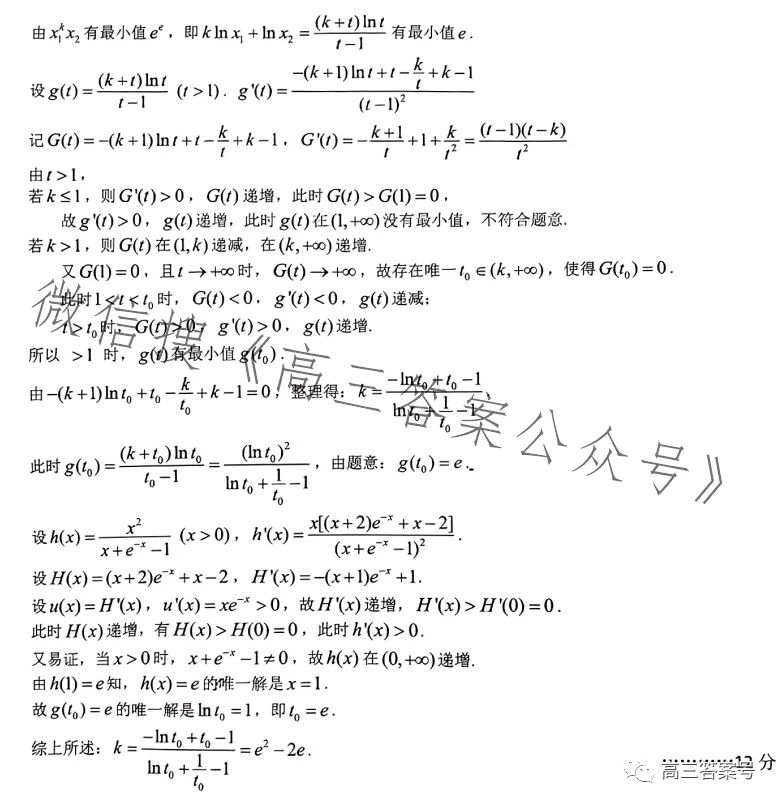 由 $x_1^k x_2$ 有最小值 $e^e$，即 $k\ln x_1+\ln x_2=\frac{(k+t)\ln t}{t-1}$ 有最小值 $e$.
设 $g(t)=\frac{(k+t)\ln t}{t-1}$ $(t>1)$. $g'(t)=\frac{-(k+1)\ln t+t-\frac{k}{t}+k-1}{(t-1)^2}$
记 $G(t)=-(k+1)\ln t+t-\frac{k}{t}+k-1$，$G'(t)=-\frac{k+1}{t}+1+\frac{k}{t^2}=\frac{(t-1)(t-k)}{t^2}$
由 $t>1$，
若 $k\leq 1$，则 $G'(t)>0$，$G(t)$ 递增，此时 $G(t)>G(1)=0$，
故 $g'(t)>0$，$g(t)$ 递增，此时 $g(t)$ 在 $(1,+\infty)$ 没有最小值，不符合题意.
若 $k>1$，则 $G(t)$ 在 $(1,k)$ 递减，在 $(k,+\infty)$ 递增.
又 $G(1)=0$，且 $t\to+\infty$ 时，$G(t)\to+\infty$，故存在唯一 $t_0\in(k,+\infty)$，使得 $G(t_0)=0$.
此时 $1<t<t_0$ 时，$G(t)<0$，$g'(t)<0$，$g(t)$ 递减；
$t>t_0$ 时，$G(t)>0$，$g'(t)>0$，$g(t)$ 递增.
所以 $>1$ 时，$g(t)$ 有最小值 $g(t_0)$.
由 $-(k+1)\ln t_0+t_0-\frac{k}{t_0}+k-1=0$，整理得：$k=\frac{-\ln t_0+t_0-1}{\ln t_0+\frac{1}{t_0}-1}$，
此时 $g(t_0)=\frac{(k+t_0)\ln t_0}{t_0-1}=\frac{(\ln t_0)^2}{\ln t_0+\frac{1}{t_0}-1}$，由题意：$g(t_0)=e$.
设 $h(x)=\frac{x^2}{x+e^{-x}-1}$ $(x>0)$，$h'(x)=\frac{x[(x+2)e^{-x}+x-2]}{(x+e^{-x}-1)^2}$.
设 $H(x)=(x+2)e^{-x}+x-2$，$H'(x)=-(x+1)e^{-x}+1$.
设 $u(x)=H'(x)$，$u'(x)=xe^{-x}>0$，故 $H'(x)$ 递增，$H'(x)>H'(0)=0$.
此时 $H(x)$ 递增，有 $H(x)>H(0)=0$，此时 $h'(x)>0$.
又易证，当 $x>0$ 时，$x+e^{-x}-1\neq 0$，故 $h(x)$ 在 $(0,+\infty)$ 递增.
由 $h(1)=e$ 知，$h(x)=e$ 的唯一解是 $x=1$.
故 $g(t_0)=e$ 的唯一解是 $\ln t_0=1$，即 $t_0=e$.
综上所述：$k=\frac{-\ln t_0+t_0-1}{\ln t_0+\frac{1}{t_0}-1}=e^2-2e$.
…………12 分
微信搜《高三答案公众号》
高三答案号